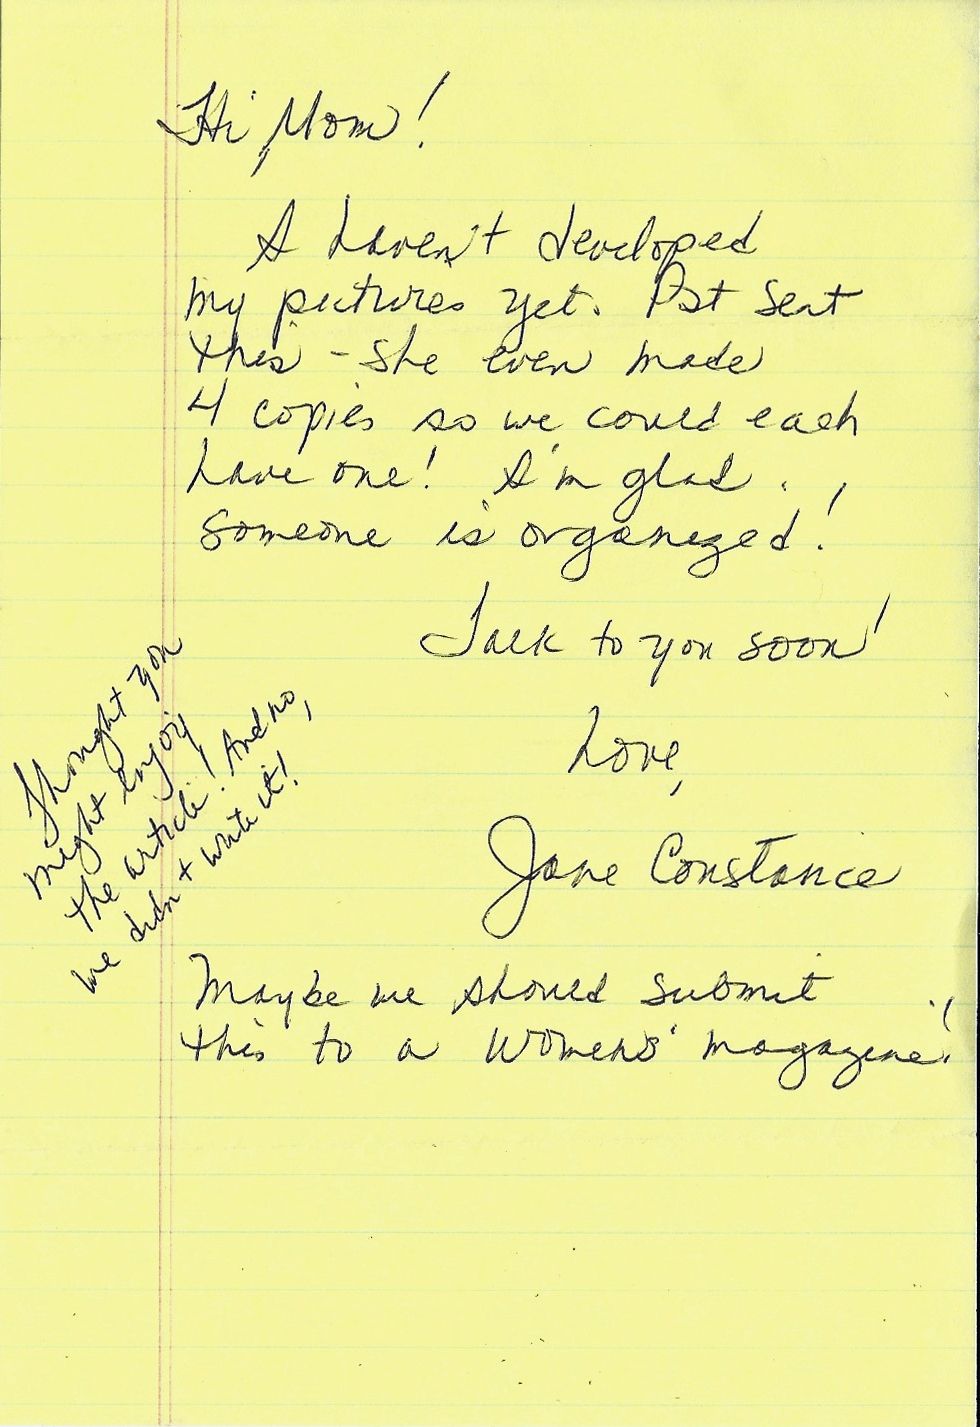 Hi Mom!
I haven't developed
my pictures yet. Pat sent
this - she even made
4 copies so we could each
have one! I'm glad
someone is organized!
Talk to you soon!
Love,
Jane Constance
Thought you
might enjoy
the article! And no,
we didn't write it!
Maybe we should submit
this to a Womens' magazine!